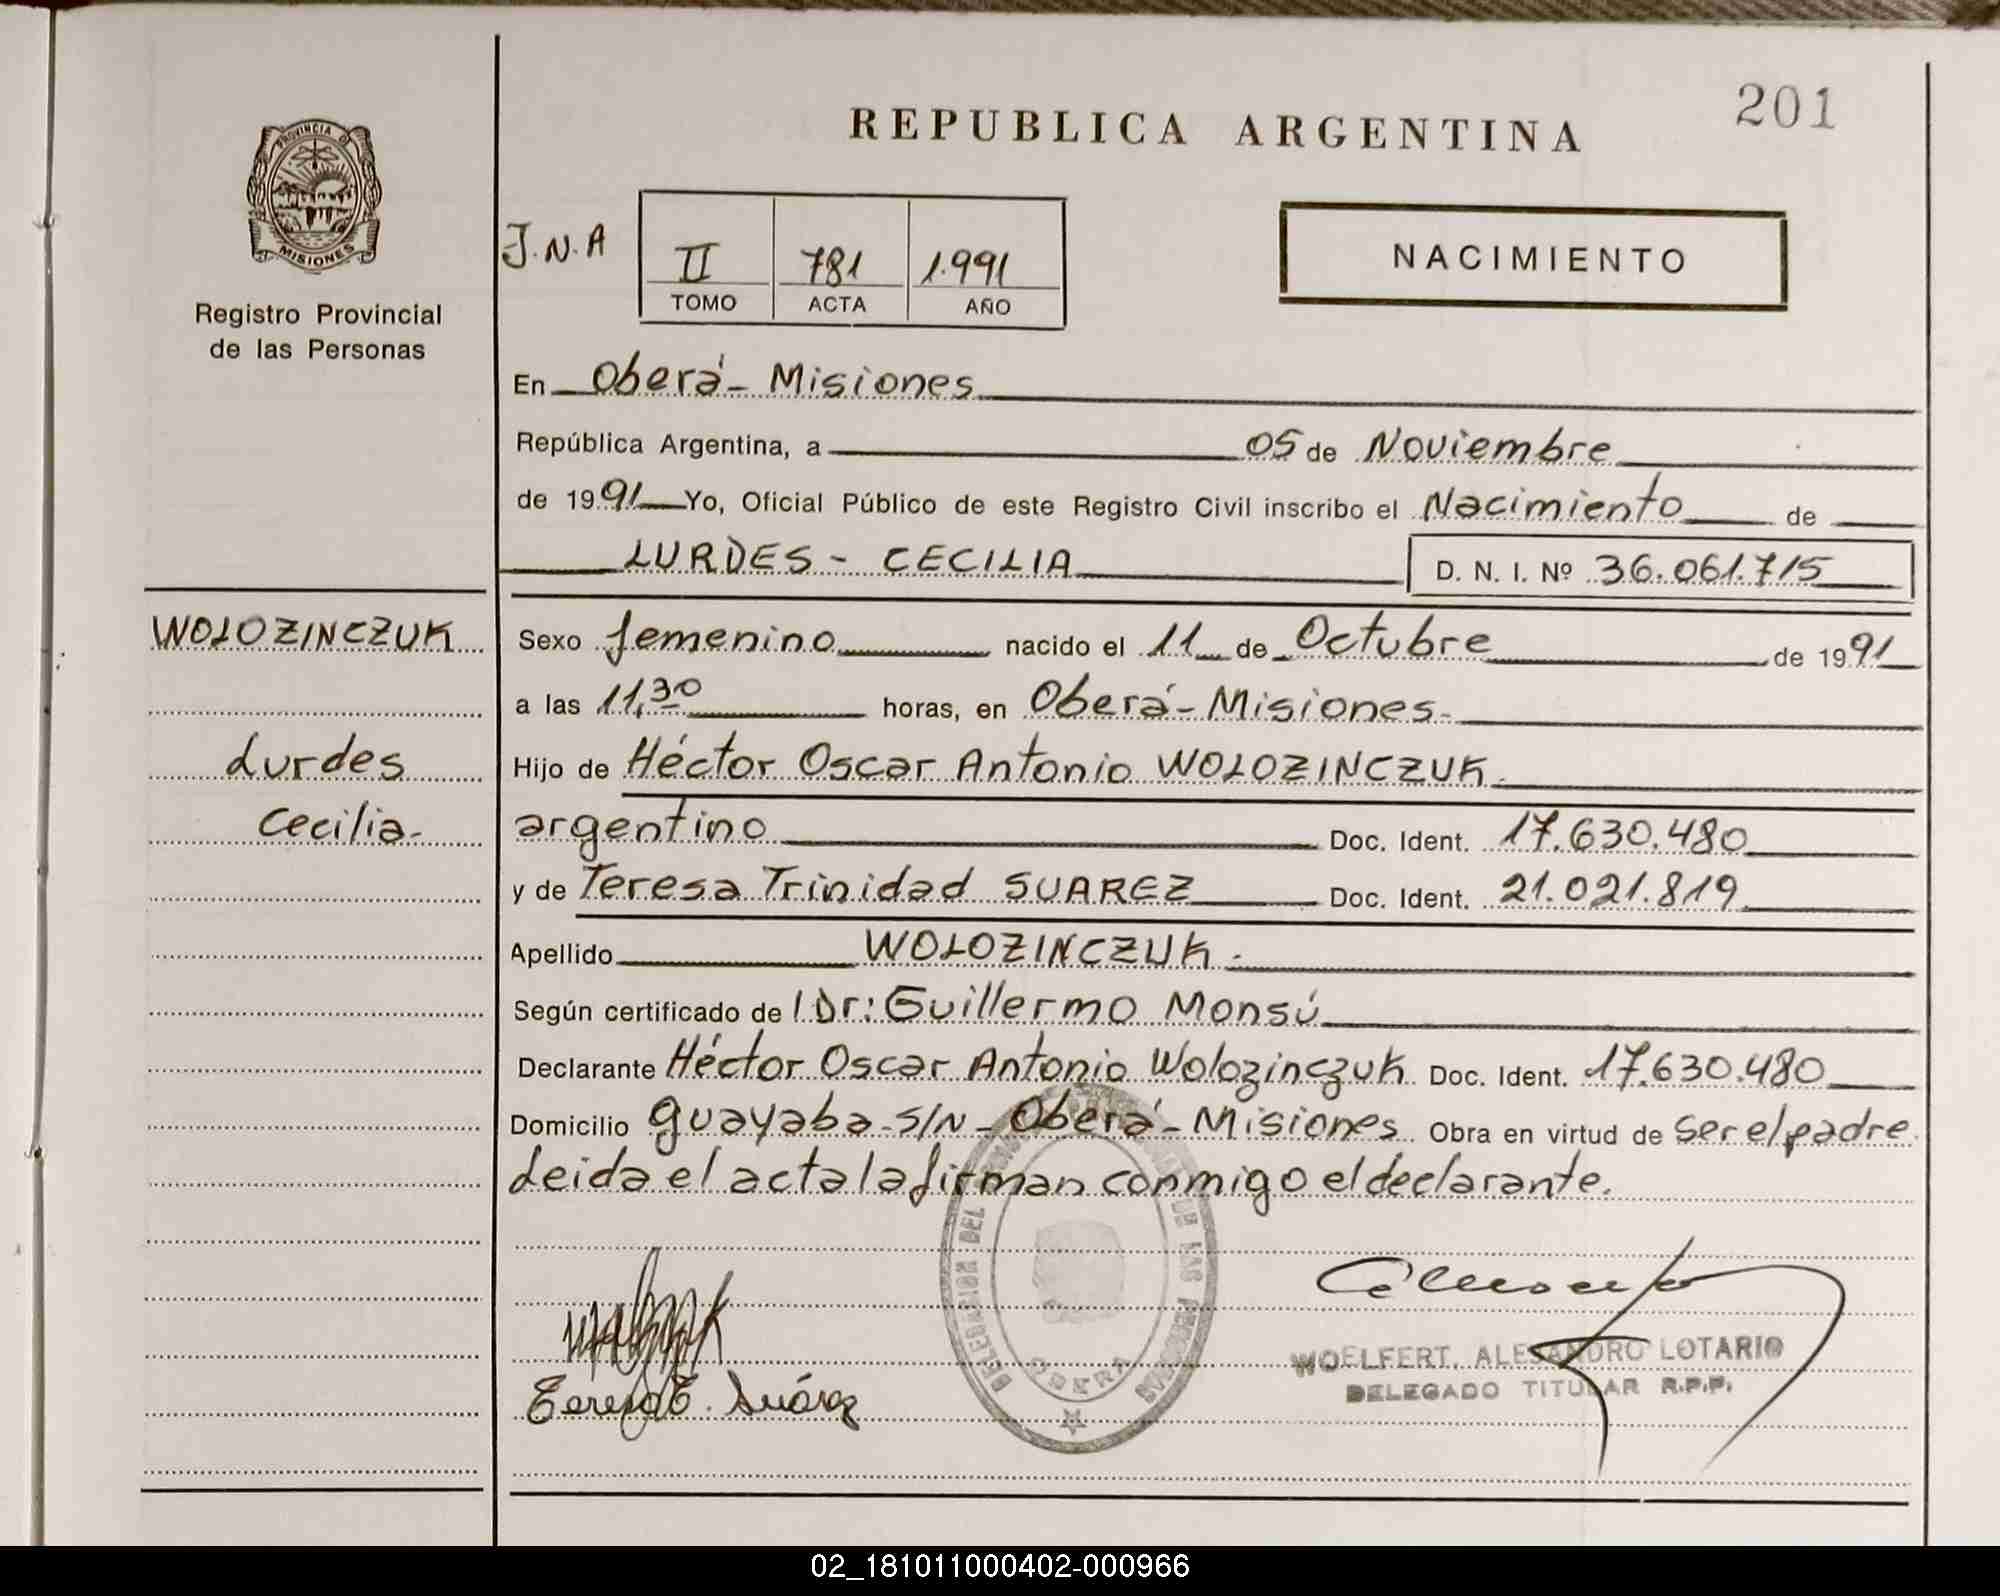 201
REPUBLICA ARGENTINA
PROVINCIA DE
MISIONES
Registro Provincial
de las Personas
J.N.A
II 781 1.991
TOMO ACTA AÑO
NACIMIENTO
En Oberá - Misiones
República Argentina, a 05 de Noviembre
de 1991 Yo, Oficial Público de este Registro Civil inscribo el Nacimiento de
LURDES - CECILIA D. N. I. Nº 36.061.715
WOLOZINCZUK
Lurdes
Cecilia.-
Sexo femenino nacido el 11 de Octubre de 1991
a las 11,30 horas, en Oberá - Misiones.-
Hijo de Héctor Oscar Antonio WOLOZINCZUK.
argentino Doc. Ident. 17.630.480
y de Teresa Trinidad SUAREZ Doc. Ident. 21.021.819
Apellido WOLOZINCZUK.-
Según certificado de l Dr: Guillermo Monsú
Declarante Héctor Oscar Antonio Wolozinczuk Doc. Ident. 17.630.480
Domicilio guayaba - S/N - Oberá - Misiones Obra en virtud de ser el padre
Leida el acta la firman conmigo el declarante.
DELEGACION DEL DE LAS PERSONAS
OBERA
Teresa T. Suárez
WOELFERT, ALESANDRO LOTARIO
DELEGADO TITULAR R.P.P.
02_181011000402-000966